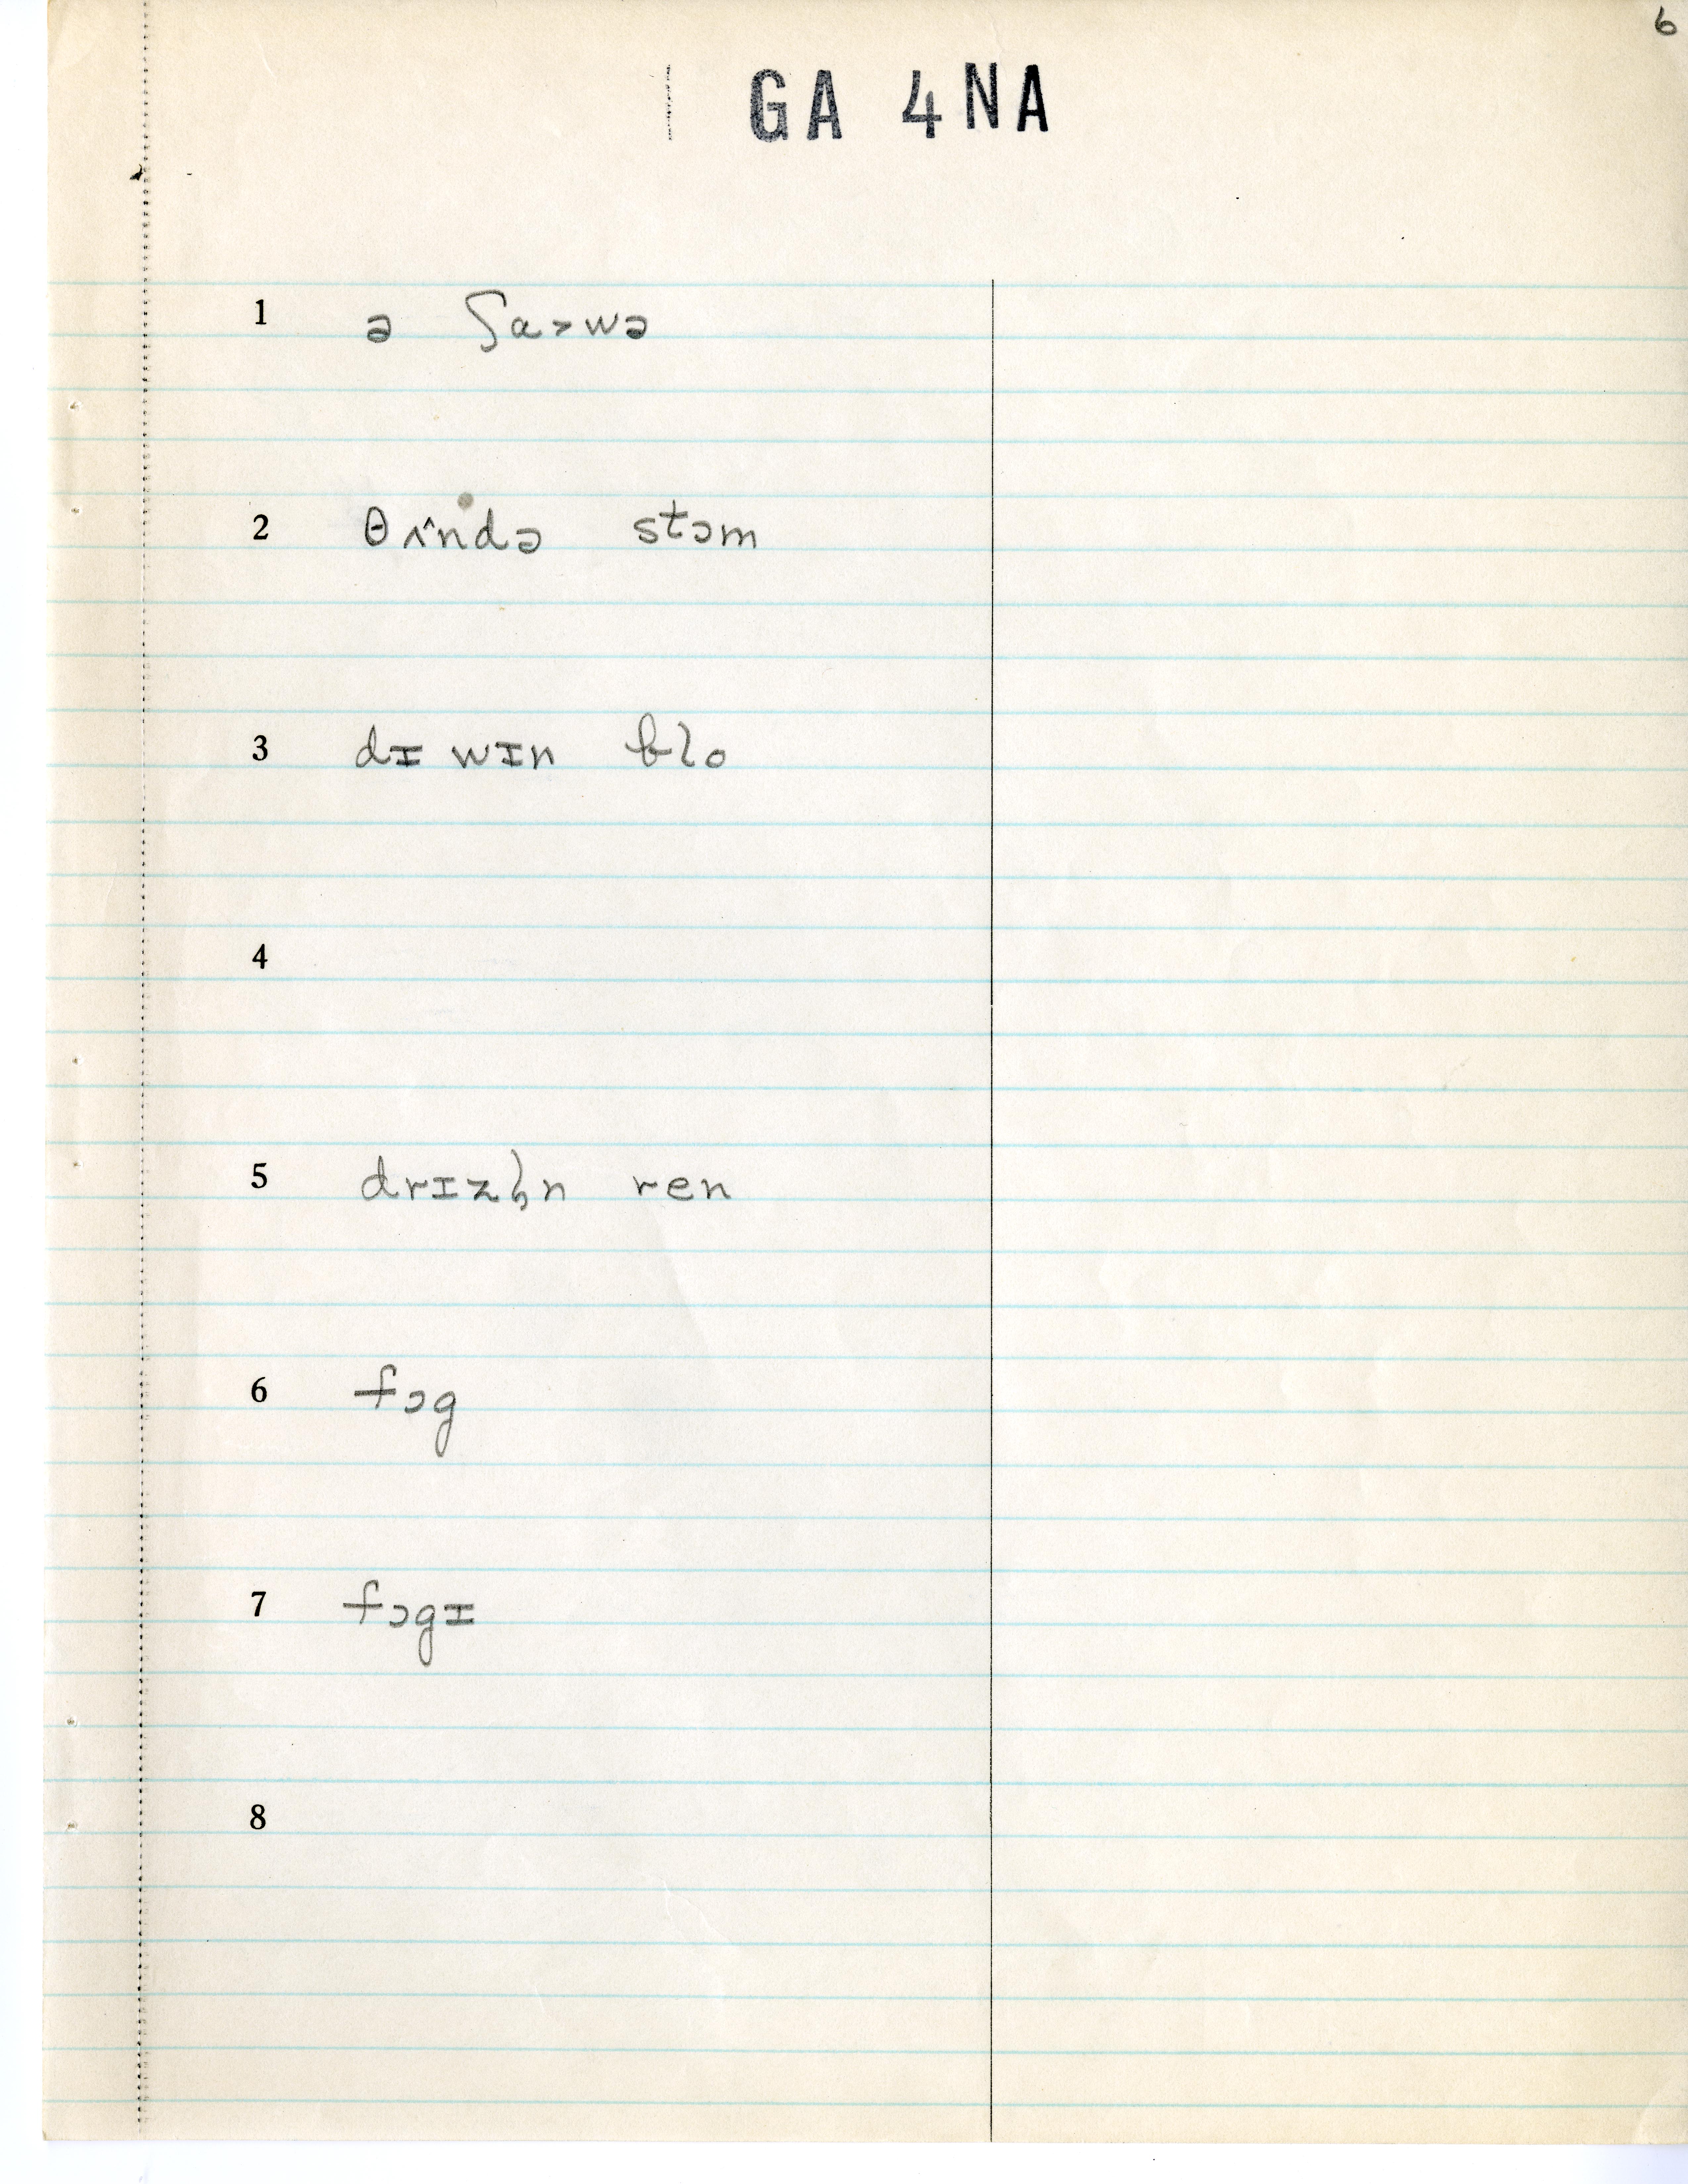 6
GA 4NA
1 ə ʃɑ>wə
2 θʌ^ndə stɔm
3 dɪ wɪn blo
4
5 drɪzl̩n ren
6 fɔg
7 fɔgɪ
8